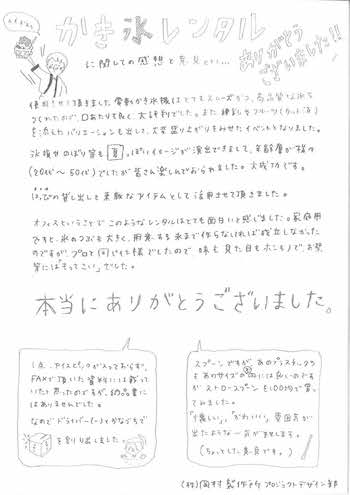 かき氷レンタル
に関しての感想と意見と…
ありがとう
ございました!!
使用させて頂きました電動かき氷機はとてもスムーズかつ、高品質な氷を
つくれたので、口あたりも良く、大好評でした。また練乳やフルーツ(カット済)
を流したバリエーションも出して、大変盛り上がりをみせたイベントとなりました。
氷旗やのぼり等も夏っぽいイメージが演出できまして、年齢層が幅の
(20代〜50代)でしたが皆さん楽しんでおられました。大成功です。
はっぴの貸し出しも素敵なアイテムとして活用させて頂きました。
オフィスということで このようなレンタルはとても面白いと感じました。家庭用
ですと、氷のつぶも大きく、用意する氷まで作らなければ成立しなかった
のですが、プロと同じバイト様でしたので 味も見た目もホンモノで、お祭
本当にありがとうございました。
1点、アイスピックが入っておらず、
FAXで頂いた資料には載って
いたと思ったのですが、納品書に
はありませんでした。
なのでドライバー(ー)とかなづちで
を割り出しました。
スプーンですが、あのプラスチックも
ですがストロースプーンを100均で買っ
てみました。
「懐しい」、「かわいい」、
(ちょっとした意見です。)
(株)岡村製作所 プロジェクトデザイン部